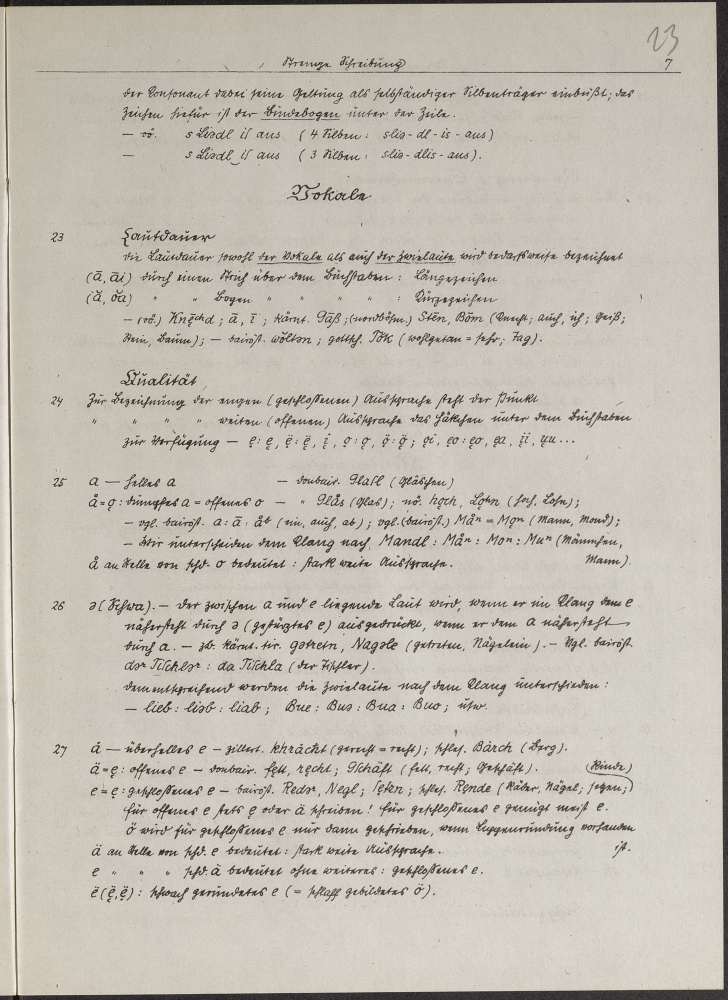 23
Strenge Schreibung
7
der Konsonant dabei seine Geltung als selbständiger Silbenträger einbüßt; das
Zeichen hiefür ist der Bindebogen unter der Zeile.
— nö. s Liadl is aus (4 Silben: slia-dl-is-aus)
— s Liadl‿is aus (3 Silben: slia-dlis-aus).
Vokale
23 Lautdauer
Die Lautdauer sowohl der Vokale als auch der Zwielaute wird bedarfsweise bezeichnet
(ā, āi) durch einen Strich über dem Buchstaben: Längezeichen
(ă, ŏa) " " Bogen " " " " : Kürzezeichen
(Knecht, auch, ich; Geiß;
Stein, Baum); — bairöst. wöltan; gottsch. Tǒk (wohlgetan = sehr; Tag).
Qualität
24 Zur Bezeichnung der engen (geschlossenen) Aussprache steht der Punkt
" " " " weiten (offenen) Aussprache das Häkchen unter dem Buchstaben
zur Verfügung —
25 a — helles a — donbair. Glasl (Gläschen)
å = ǫ: dumpfes a = offenes o — " Glås (Glas); nö. (hoch, Lohn);
— vgl. bairöst. a: ā: åb (ein, auch, ab); vgl. (bairöst.) Måⁿ = Mǫⁿ (Mann, Mond);
— Wir unterscheiden dem Klang nach, Mandl: Måⁿ: Moⁿ: Muⁿ (Männchen,
Mann).
å an Stelle von schd. o bedeutet: stark weite Aussprache.
26 ə (Schwa). — Der zwischen a und e liegende Laut wird, wenn er im Klang dem e
nähersteht durch ə (gestürztes e) ausgedrückt, wenn er dem a nähersteht
durch a. — zb. kärnt. tir. gətretn, Nagəle (getreten, Nägelein). — Vgl. bairöst.
dər Tischlər: da Tischla (der Tischler).
Dementsprechend werden die Zwielaute nach dem Klang unterschieden:
— lieb: liəb: liab; Bue: Buə: Bua: Buo; usw.
27 à — überhelles e — zillert. khràcht (gerecht = recht); schles. Bàrch (Berg).
ä = ę: offenes e — donbair. fętt, ręcht; Gschäft (fett, recht; Geschäft).
e = ẹ: geschlossenes e — bairöst. Redər, Negl; (Räder, Nägel; segen;
Rinde)
für offenes e stets ę oder ä schreiben! Für geschlossenes e genügt meist e.
ö wird für geschlossenes e nur dann geschrieben, wenn Lippenrundung vorhanden
ist.
ä an Stelle von schd. e bedeutet: stark weite Aussprache.
e " " " schd. ä bedeutet ohne weiteres: geschlossenes e.
schwach gerundetes e (= schlaff gebildetes ö).